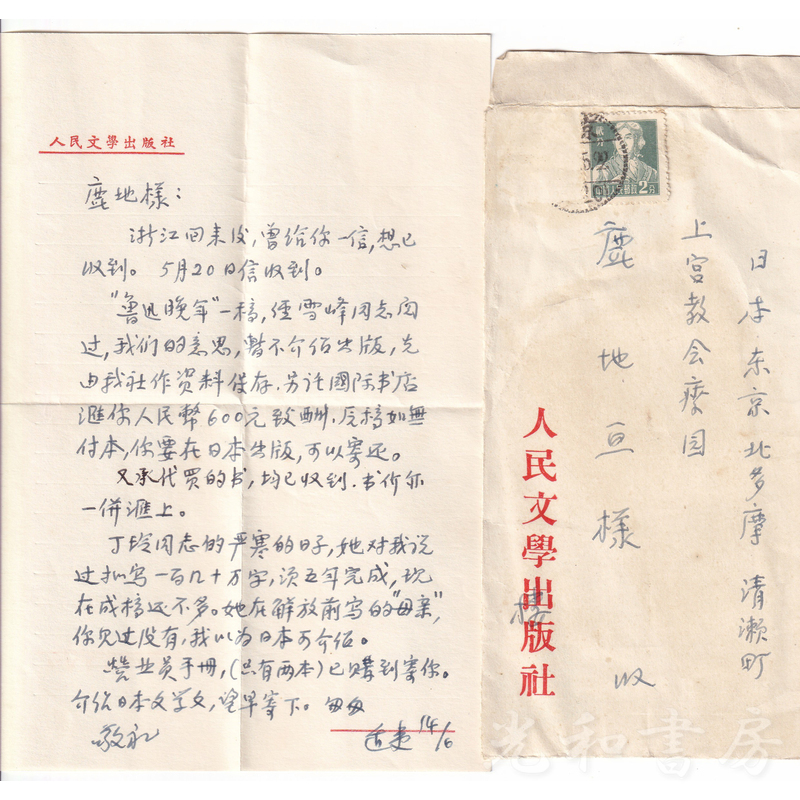 人民文學出版社
鹿地様：
浙江回来後，曾给你一信，想已
收到。5月20日信收到。
"鲁迅晚年"一稿，经雪峰同志阅
过，我们的意思，暂不介绍出版，先
由我社作资料保存，另託國际书店
滙你人民幣600元致酬，原稿如無
付本，你要在日本出版，可以寄还。
又承代买的书，均已收到，书价亦
一併滙上。
丁玲同志的严寒的日子，她对我说
过拟写一百几十万字，须五年完成，现
在成稿还不多。她在解放前写的"母亲"，
你见过没有，我以为日本可介绍。
营业员手册，(只有两本)已购到寄你。
介绍日本文学文，望早寄下。匆匆
敬礼
适夷 14/6
2分
日本东京北多摩 清瀬町
上宮教会療园
鹿地亘 様 收
人民文學出版社
樓
光和書房